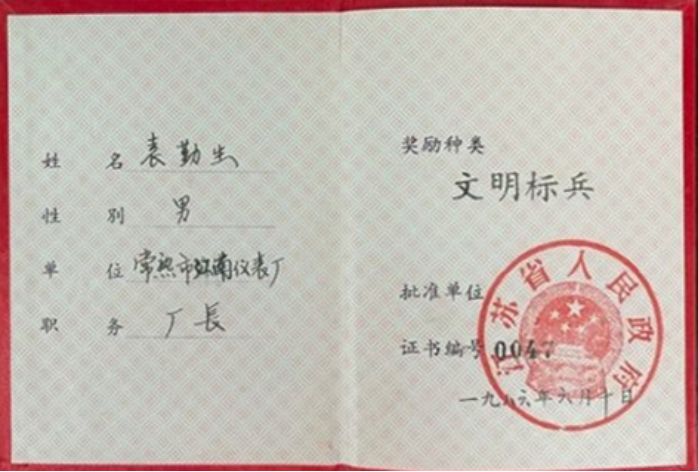 姓名 袁勤生
性别 男
单位 常熟市江南仪表厂
职务 厂長
奖励种类
文明标兵
批准单位
证书编号 0047
一九八六年六月十日
江苏省人民政府